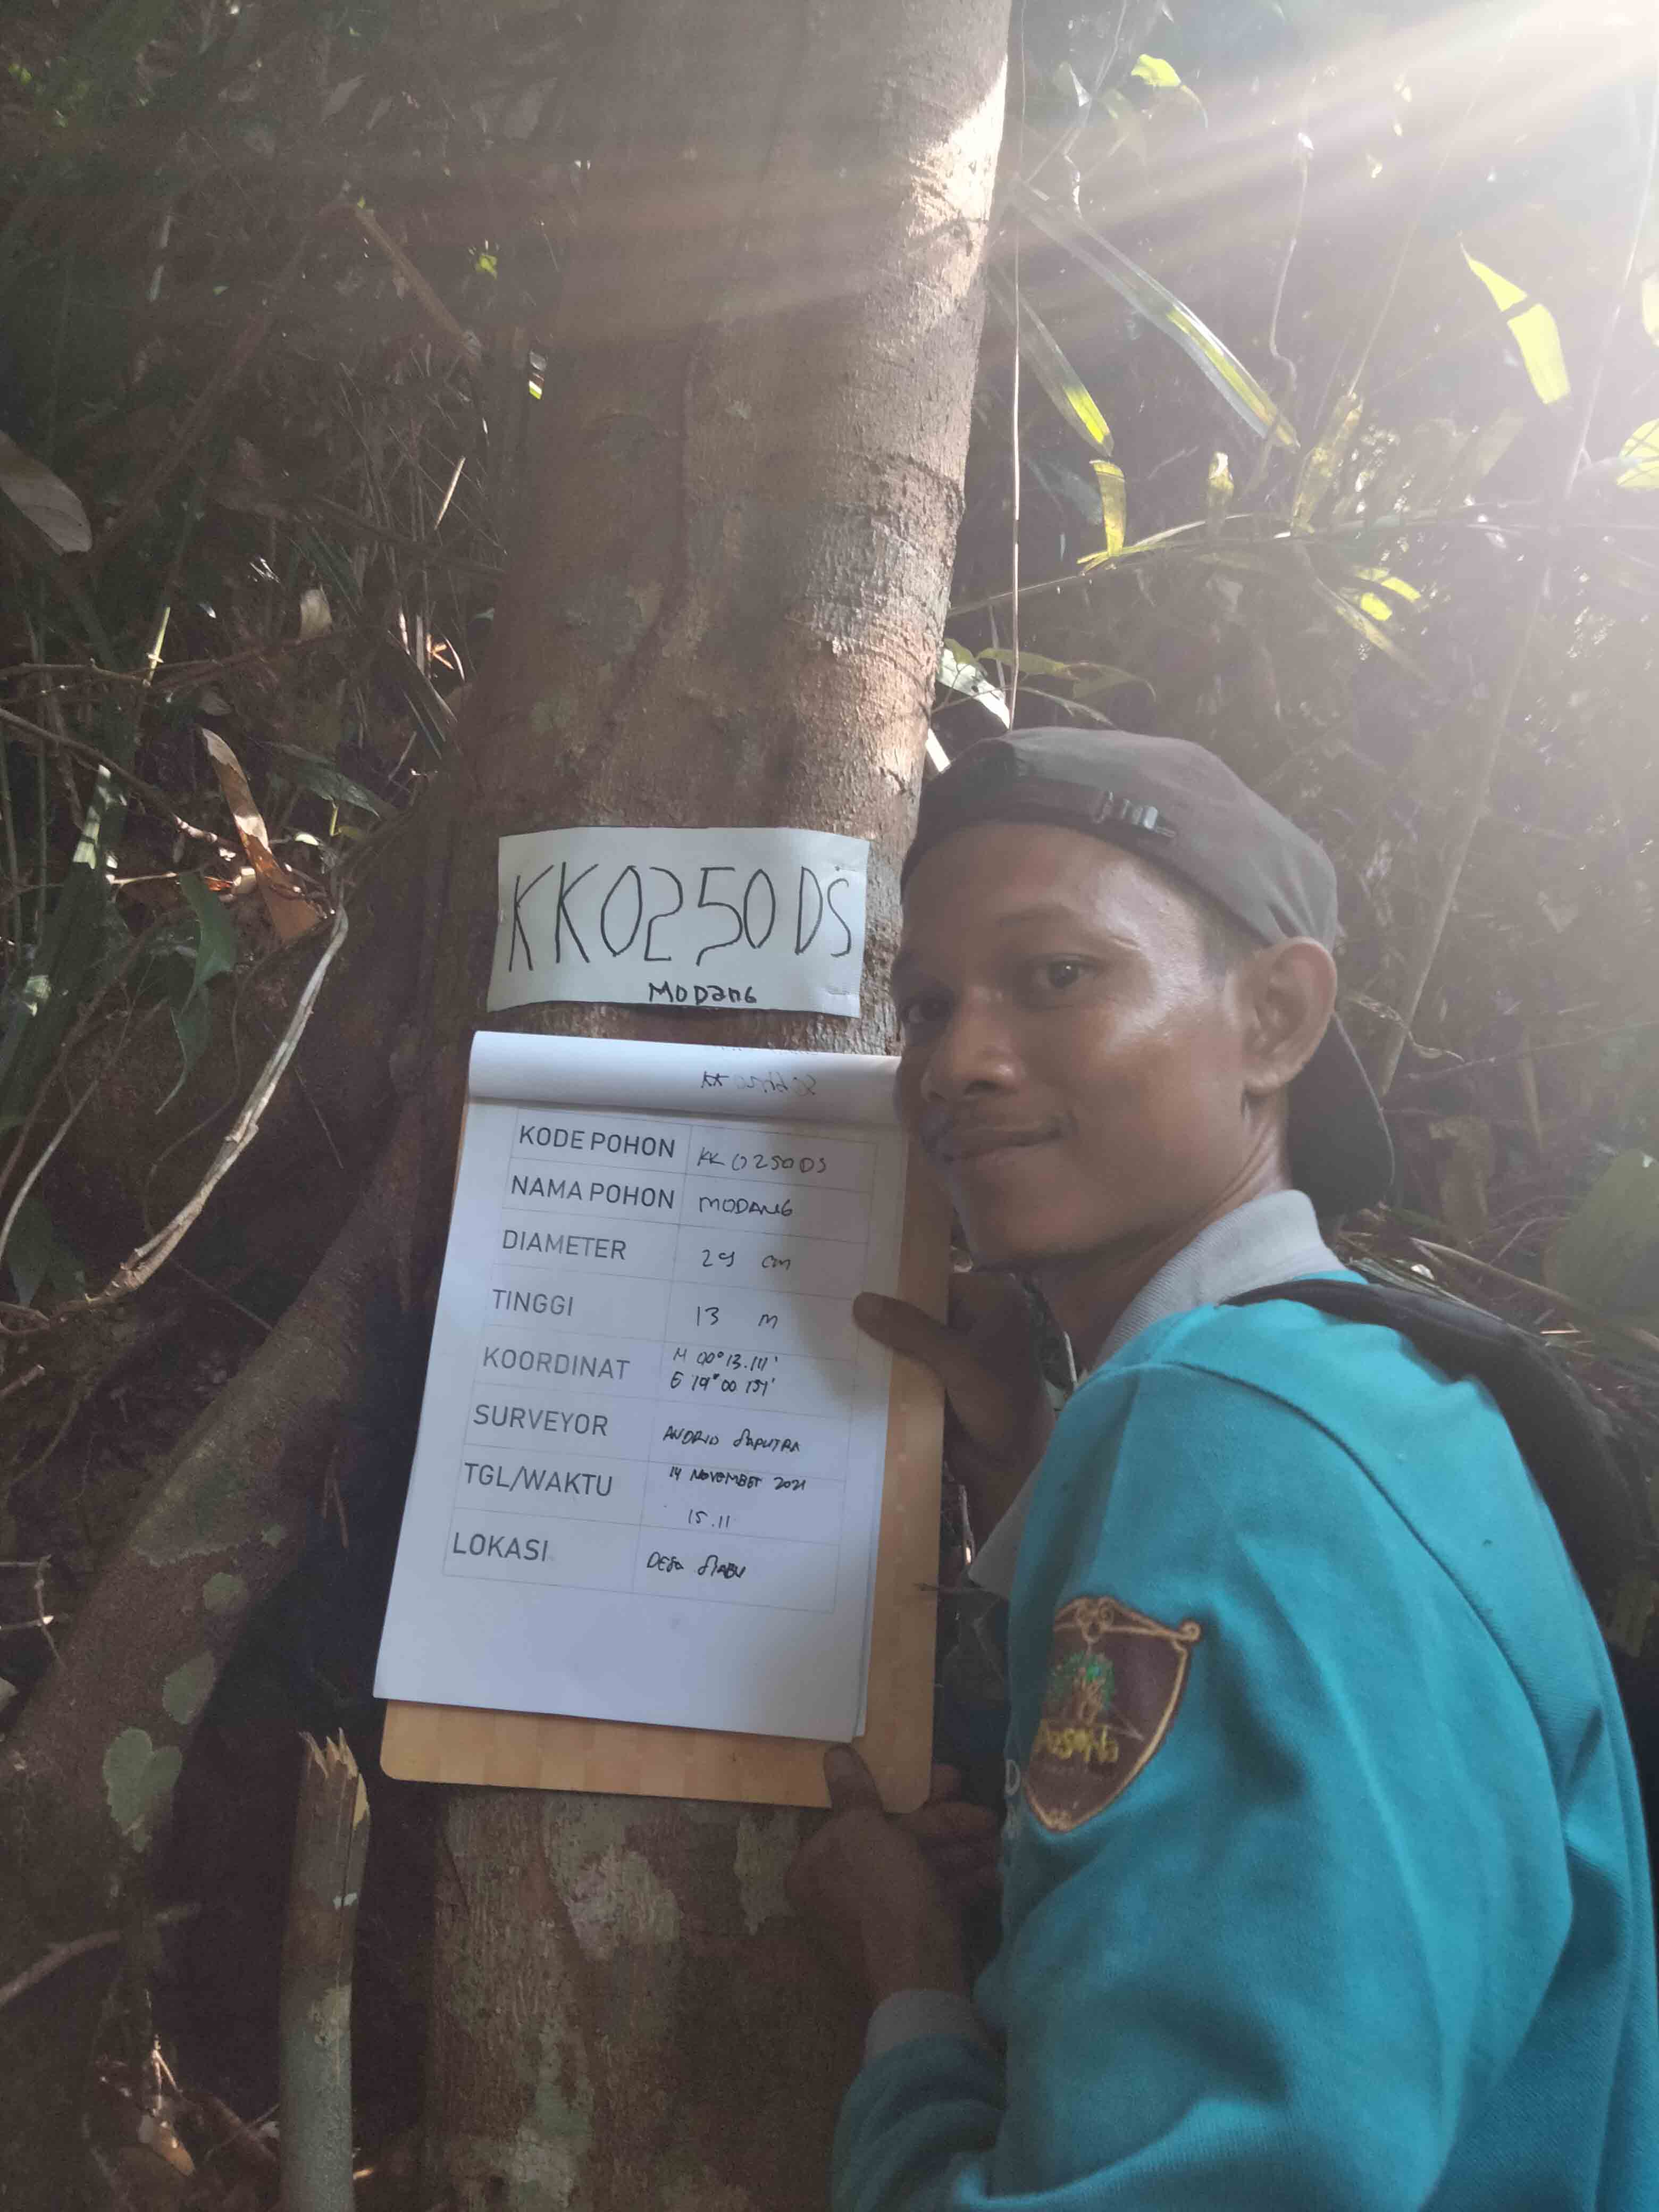 KK0250DS
MODANG
KODE POHON KK 0250DS
NAMA POHON MODANG
DIAMETER 29 cm
TINGGI 13 m
KOORDINAT N 00°13.111'
SURVEYOR SAPUTRA
TGL/WAKTU 14 NOVEMBER 2021
15.11
LOKASI DESA SIABU